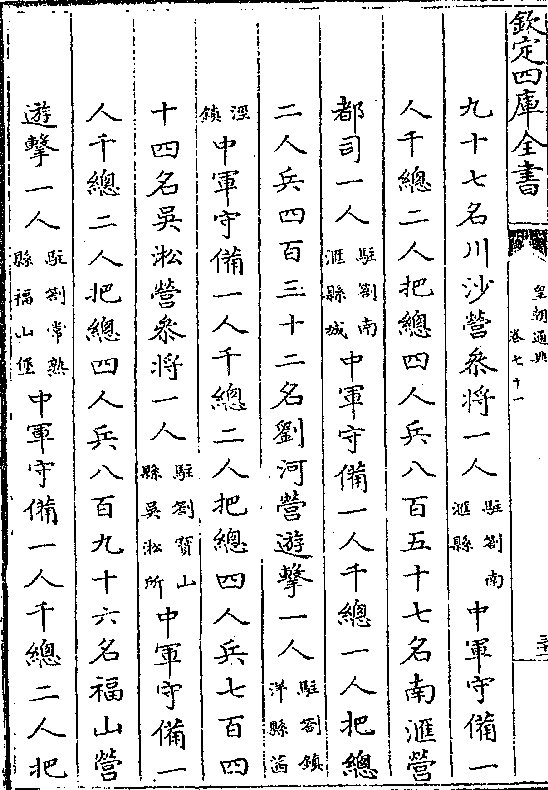 欽定四庫全書
皇朝通典
卷七十一
九十七名川沙營叅將一人駐劄南滙縣中軍守備一
人千總二人把總四人兵八百五十七名南滙營
都司一人駐劄南滙縣城中軍守備一人千總一人把總
二人兵四百三十二名劉河營遊擊一人駐劄鎮洋縣茜
涇鎮中軍守備一人千總二人把總四人兵七百四
十四名吳淞營叅將一人駐劄寳山縣吳淞所中軍守備一
人千總二人把總四人兵八百九十六名福山營
遊擊一人駐劄常熟縣福山堡中軍守備一人千總二人把